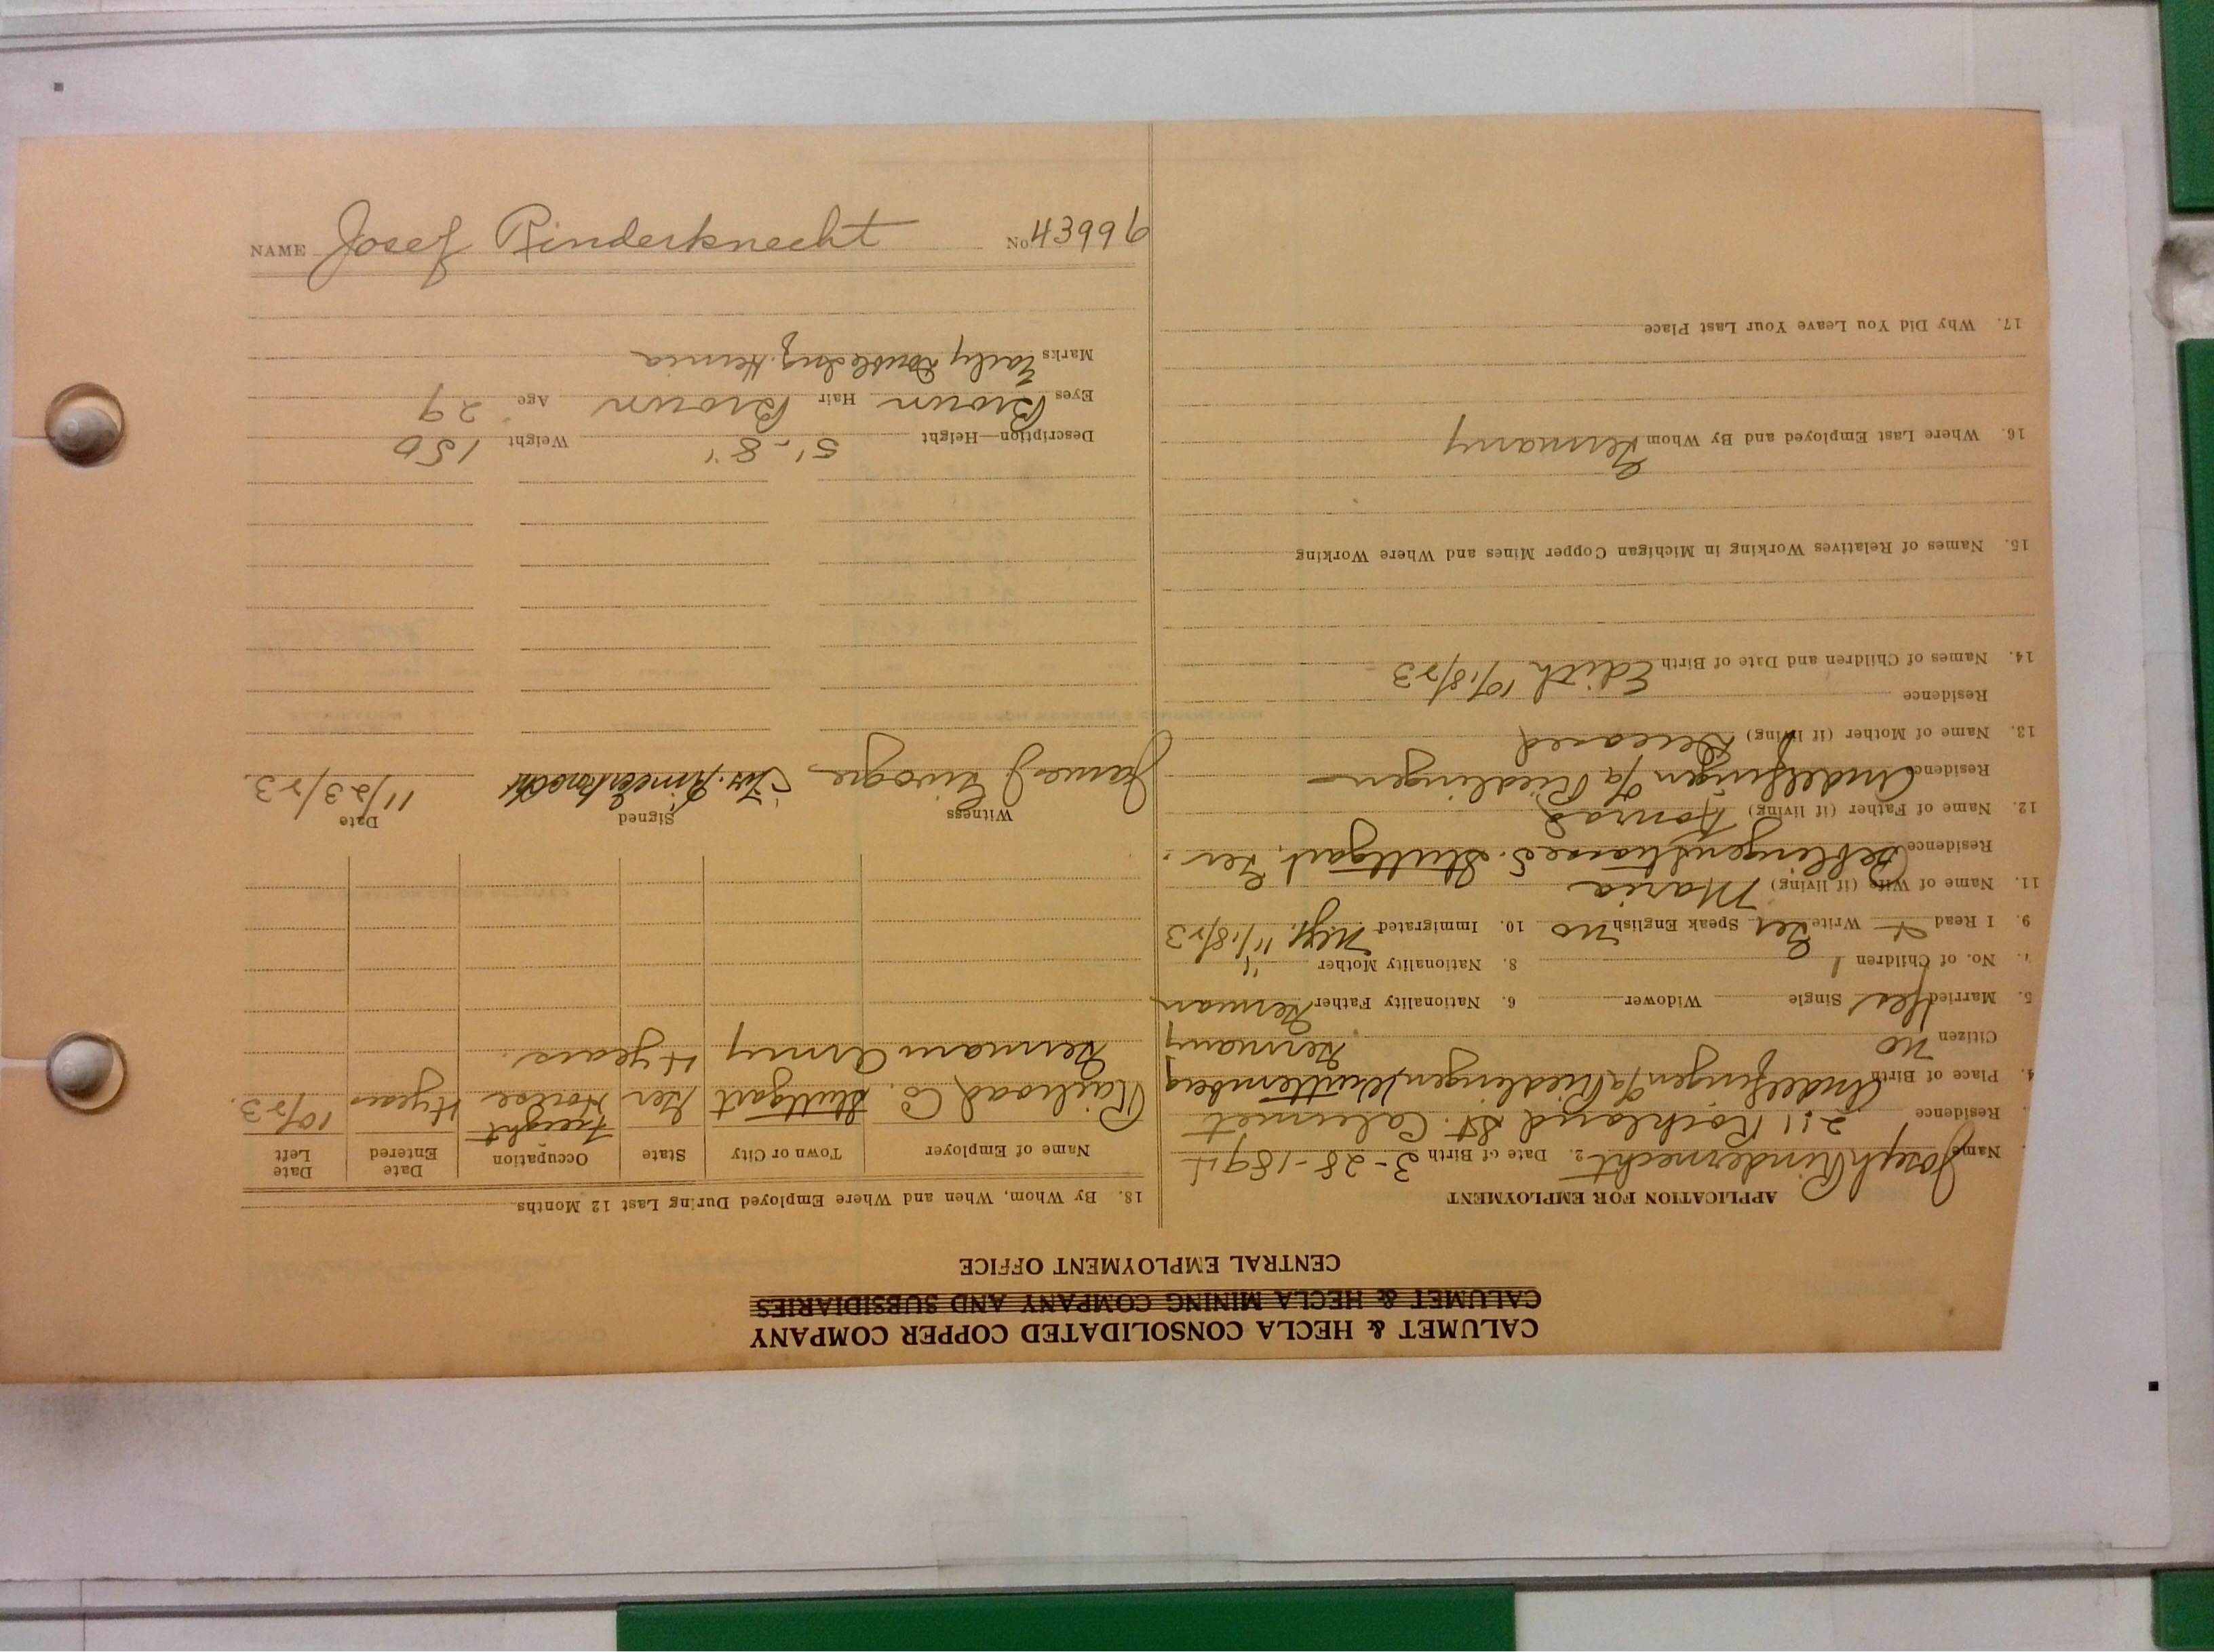 CALUMET & HECLA CONSOLIDATED COPPER COMPANY
CALUMET & HECLA MINING COMPANY AND SUBSIDIARIES
CENTRAL EMPLOYMENT OFFICE
APPLICATION FOR EMPLOYMENT
Name Joseph Rinderknecht 2. Date of Birth 3-28-1894
Residence 211 Rockland St. Calumet
4. Place of Birth Andelfingen o/a Riedlingen, Wurttemberg
Citizen no Germany
5. Married Yes Single Widower 6. Nationality Father German
7. No. of Children 1 8. Nationality Mother "
9. I Read + Write Ger Speak English no 10. Immigrated N.Y. 11/18/23
11. Name of Wife (if living) Maria
Residence Stuttgart, Ger.
12. Name of Father (if living) Konrad
Residence Andelfingen o/a Riedlingen
13. Name of Mother (if living) Deceased
Residence
14. Names of Children and Date of Birth Edith 10/18/23
15. Names of Relatives Working in Michigan Copper Mines and Where Working
16. Where Last Employed and By Whom Germany
17. Why Did You Leave Your Last Place
18. By Whom, When and Where Employed During Last 12 Months
Name of Employer Town or City State Occupation Date Entered Date Left
Railroad Co. Stuttgart Ger Freight House 4 years 10/23.
German Army 4 years.
Witness Signed Date
James Jos. Rinderknecht 11/23/23.
Description—Height 5'-8" Weight 150
Eyes Brown Hair Brown Age 29
Marks Early Double Ing. Hernia
NAME Josef Rinderknecht No. 43996